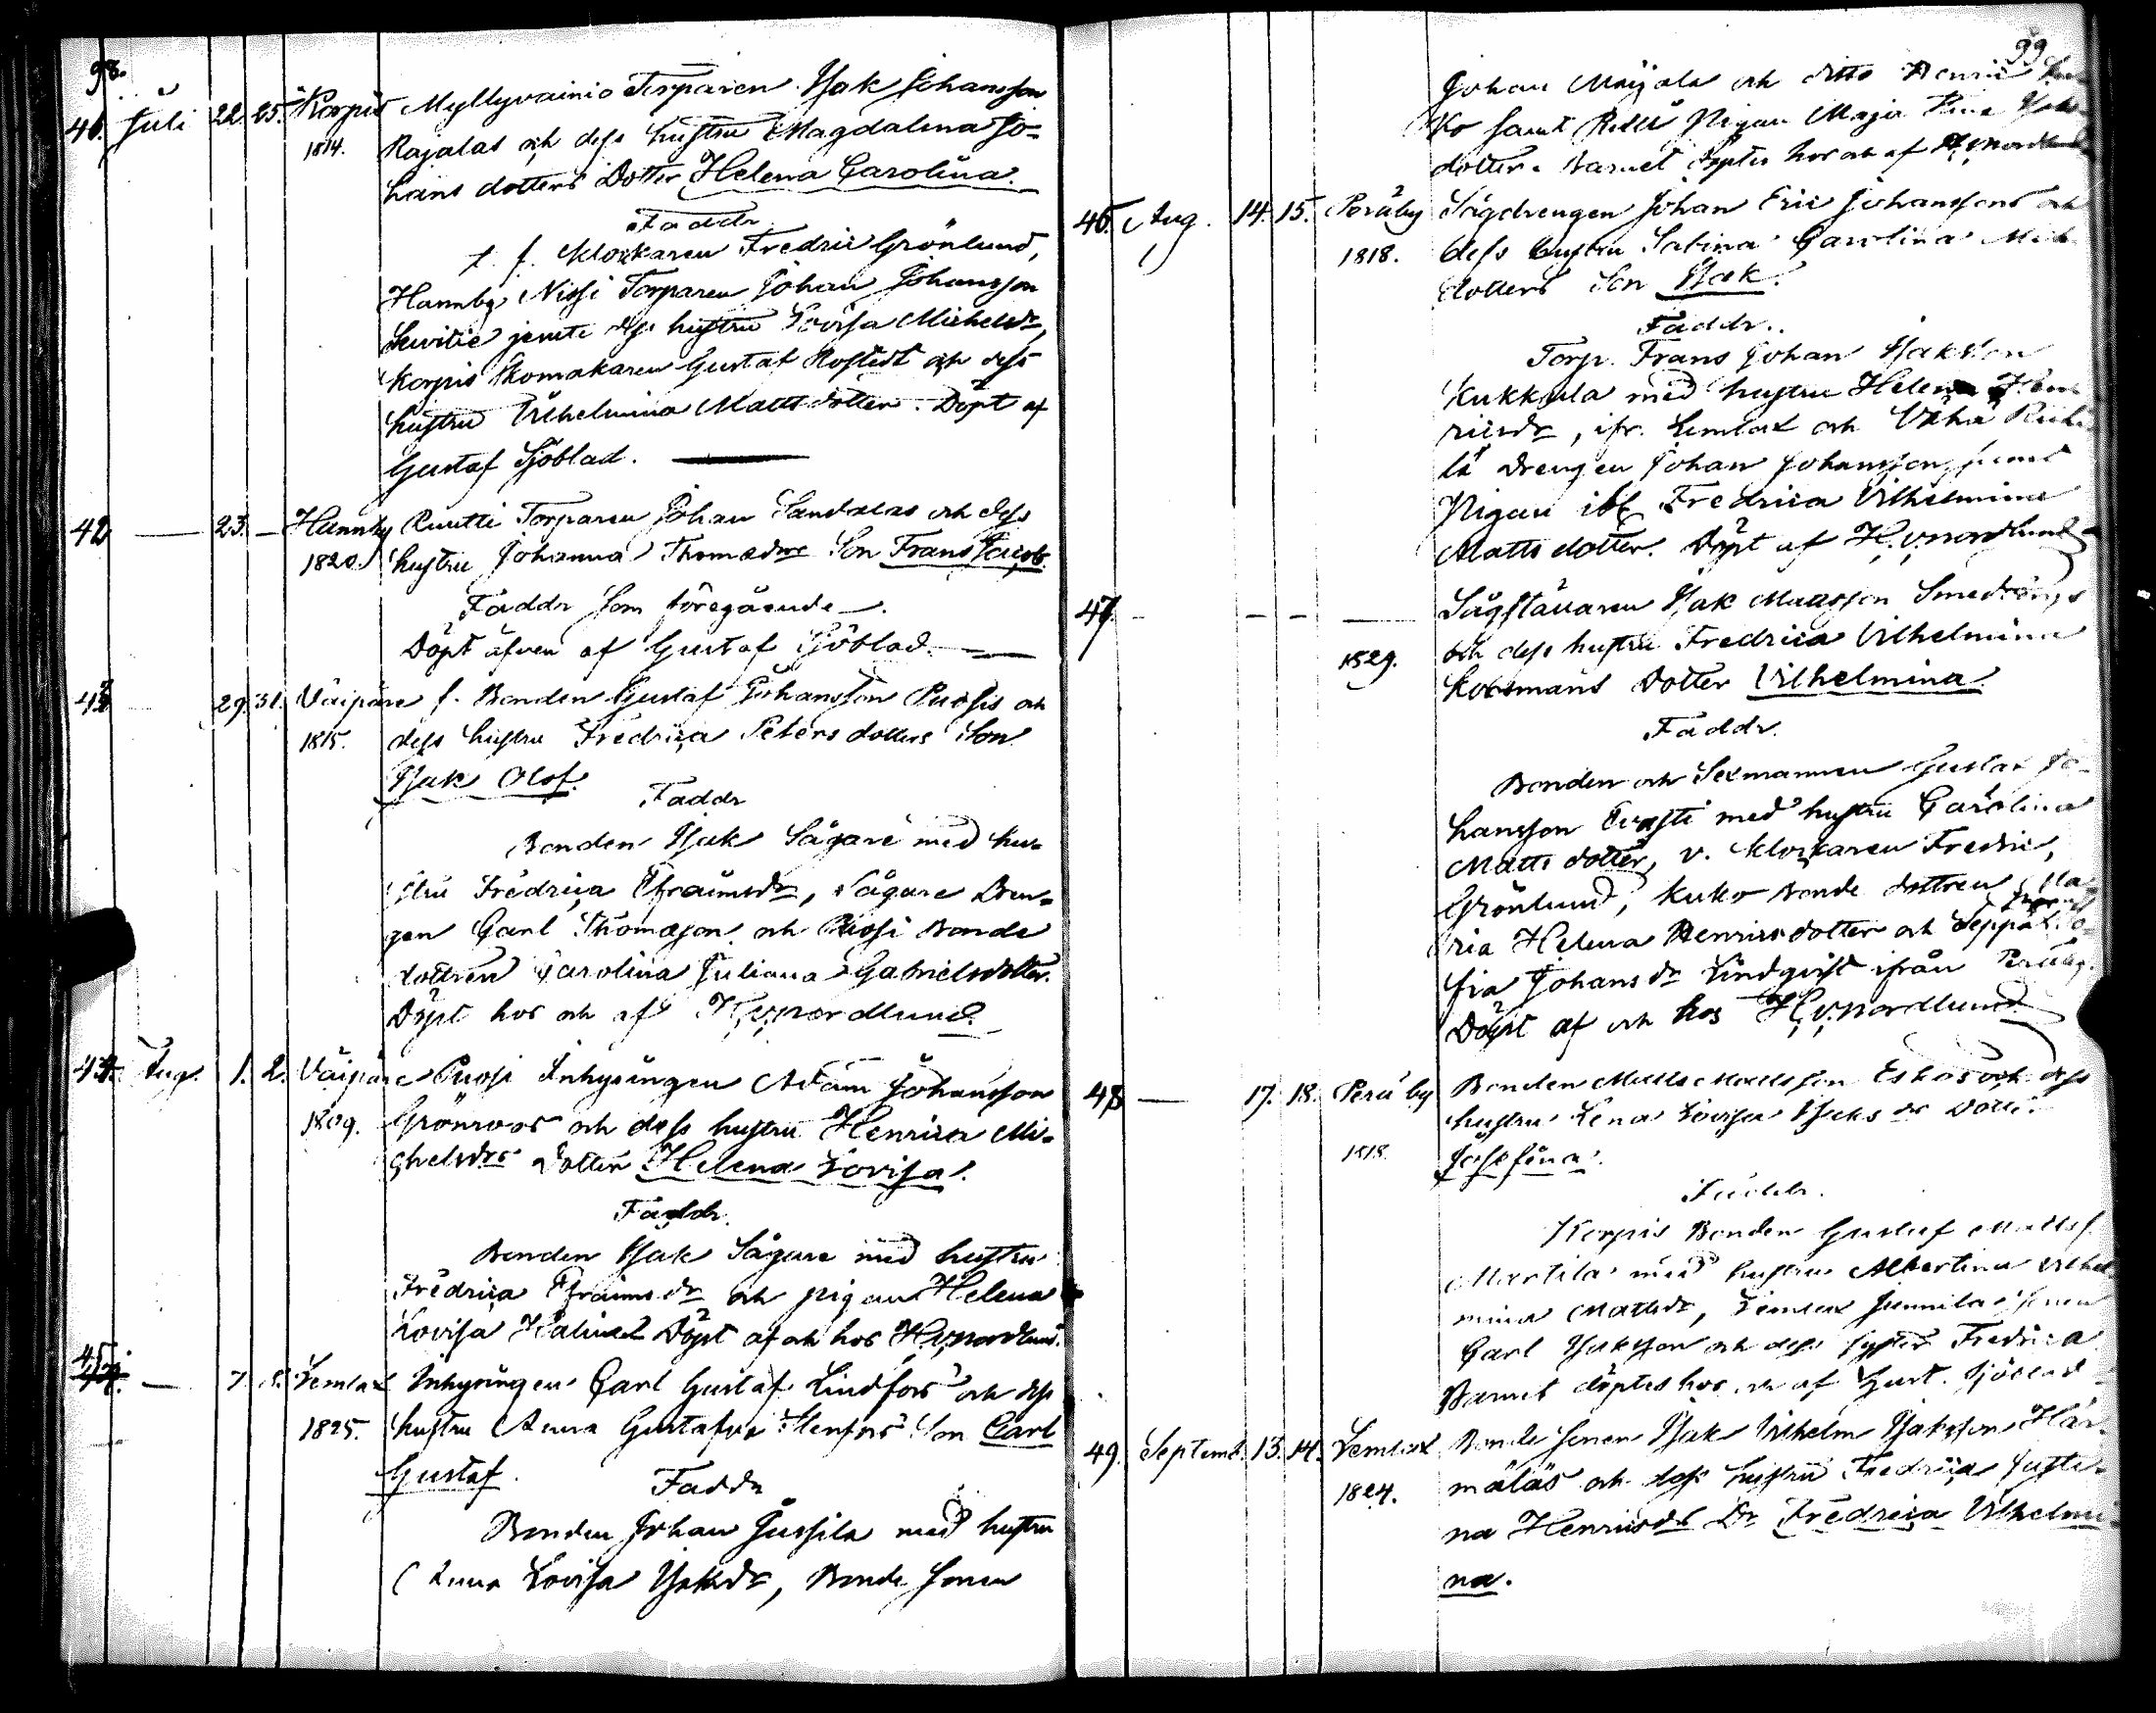 98.
41. Juli 22. 25. Korpis Myllyvainio Torparen Isak Johansson
1814. Rajalas och dess hustru Magdalena Jo-
hans dotters Dotter Helena Carolina.
Faddr
t. f. Klockaren Fredric Grönlund,
Hannby Nissi Torparen Johan Johansson
jemte dess hustru Lovisa Michelsdr,
Korpis Skomakaren Gustaf Hostedt och dess
hustru Vilhelmina Matts dotter. Döpt af
Gustaf Sjöblad.
42 — 23. — Hannby Ruutti Torparen Johan Sandalas och dess
1820. hustru Johanna Thomædrs Son Frans Jacob.
Faddr som föregående —.
Döpt äfven af Gustaf Sjöblad.
43 29. 31. Väipäre f. Bonden Gustaf Johansson Puosis och
1815. dess hustru Fredrica Petersdotters Son
Isak Olof.
Faddr
Bonden Isak Sågare med hu-
stru Fredrica Efraimsdr, Sågare Dren-
gen Carl Thomasson och Puosi Bonde
dottren Carolina Juliana Gabrielsdotter.
Döpt hos och af H. v. Nordlund.
44. Aug. 1. 2. Väipäre Puosi Inhysingen Adam Johansson
1809. Grönroos och dess hustru Henrica Mi-
chelsdrs dotter Helena Lovisa.
Faddr.
Bonden Isak Sågare med hustru
Fredrica Efraimsdr och pigan Helena
Lovisa Döpt af och hos H. v. Nordlund.
45. — 7. 8. Lemlax Inhysingen Carl Gustaf Lindfors och dess
1825. hustru Anna Gustafva Stenfors Son Carl
Gustaf.
Faddr
Bonden Johan Jussila med hustru
Anna Lovisa Isaksdr, Bonde Sonen
99
Johan Mäyälä och ditto Henric
Ko samt Pigan Maja Isaks
dotter. Barnet döptes hos och af H. v. Nordlund
46. Aug. 14. 15. Peräby Sågdrengen Johan Eric Johanssons och
1818. dess hustru Sabina Carolina
dotters Son Isak.
Faddr.
Torp. Frans Johan Isaksson
Kukkula med hustru Helena Hen
ricsdr, ifr. Lemlax och Vähä
lä Drengen Johan Johansson, samt
Pigan ibl. Fredrica Vilhelmina
Mattsdotter. Döpt af H. v. Nordlund
47. — — — — Sågställaren Isak Mattsson Smedbergs
1829. och dess hustru Fredrica Vilhelmina
Koosmans Dotter Vilhelmina
Faddr.
Bonden och Sexmannen Gustaf Jo-
hansson Evasti med hustru Carolina
Matts dotter, v. Klockaren Fredric,
Grönlund, Kuko Bonde dottren Ma
ria Helena Henricsdotter och Seppä So-
fia Johansdr Lindqvist ifrån Peräby.
Döpt af och hos H. v. Nordlund
48 — 17. 18. Peräby Bonden Matts Mattsson Eskos och dess
1818. hustru Lena Lovisa Isaks dr Dotter
Josefina.
Faddr.
Korpis Bonden Gustaf Mattss.
Marttila med hustru Albertina Vilhel
mina Mattsdr, Lemlax Junnila Sonen
Carl Isaksson och dess syster Fredrica
Barnet döptes hos och af Gust. Sjöblad
49. Septemb. 13. 14. Lemlax Bonde Sonen Isak Vilhelm Isaksson Här-
1824. mäläs och dess hustru Fredrica Justi-
na Henricsdrs Dr Fredrica Vilhelmi-
na.